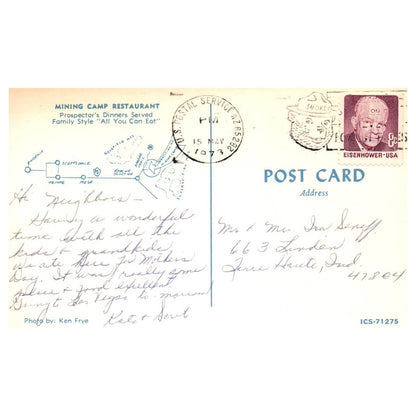 MINING CAMP RESTAURANT
Prospector's Dinners Served
Family Style "All You Can Eat"
PHOENIX
SCOTTSDALE
TEMPE
MESA
Hi Neighbors—
Having a wonderful
time with all the
kids & grandkids,
we ate here for Mothers
Day. It was really some
place & food exellent.
Going to Las Vegas to-morrow
Photo by: Ken Frye
U.S. POSTAL SERVICE AZ 852
PM
15 MAY
1973
SMOKEY
8¢
EISENHOWER·USA
POST CARD
Address
Mr & Mrs. Ira
663 Linden
Terre Haute, Ind.
47804
ICS-71275